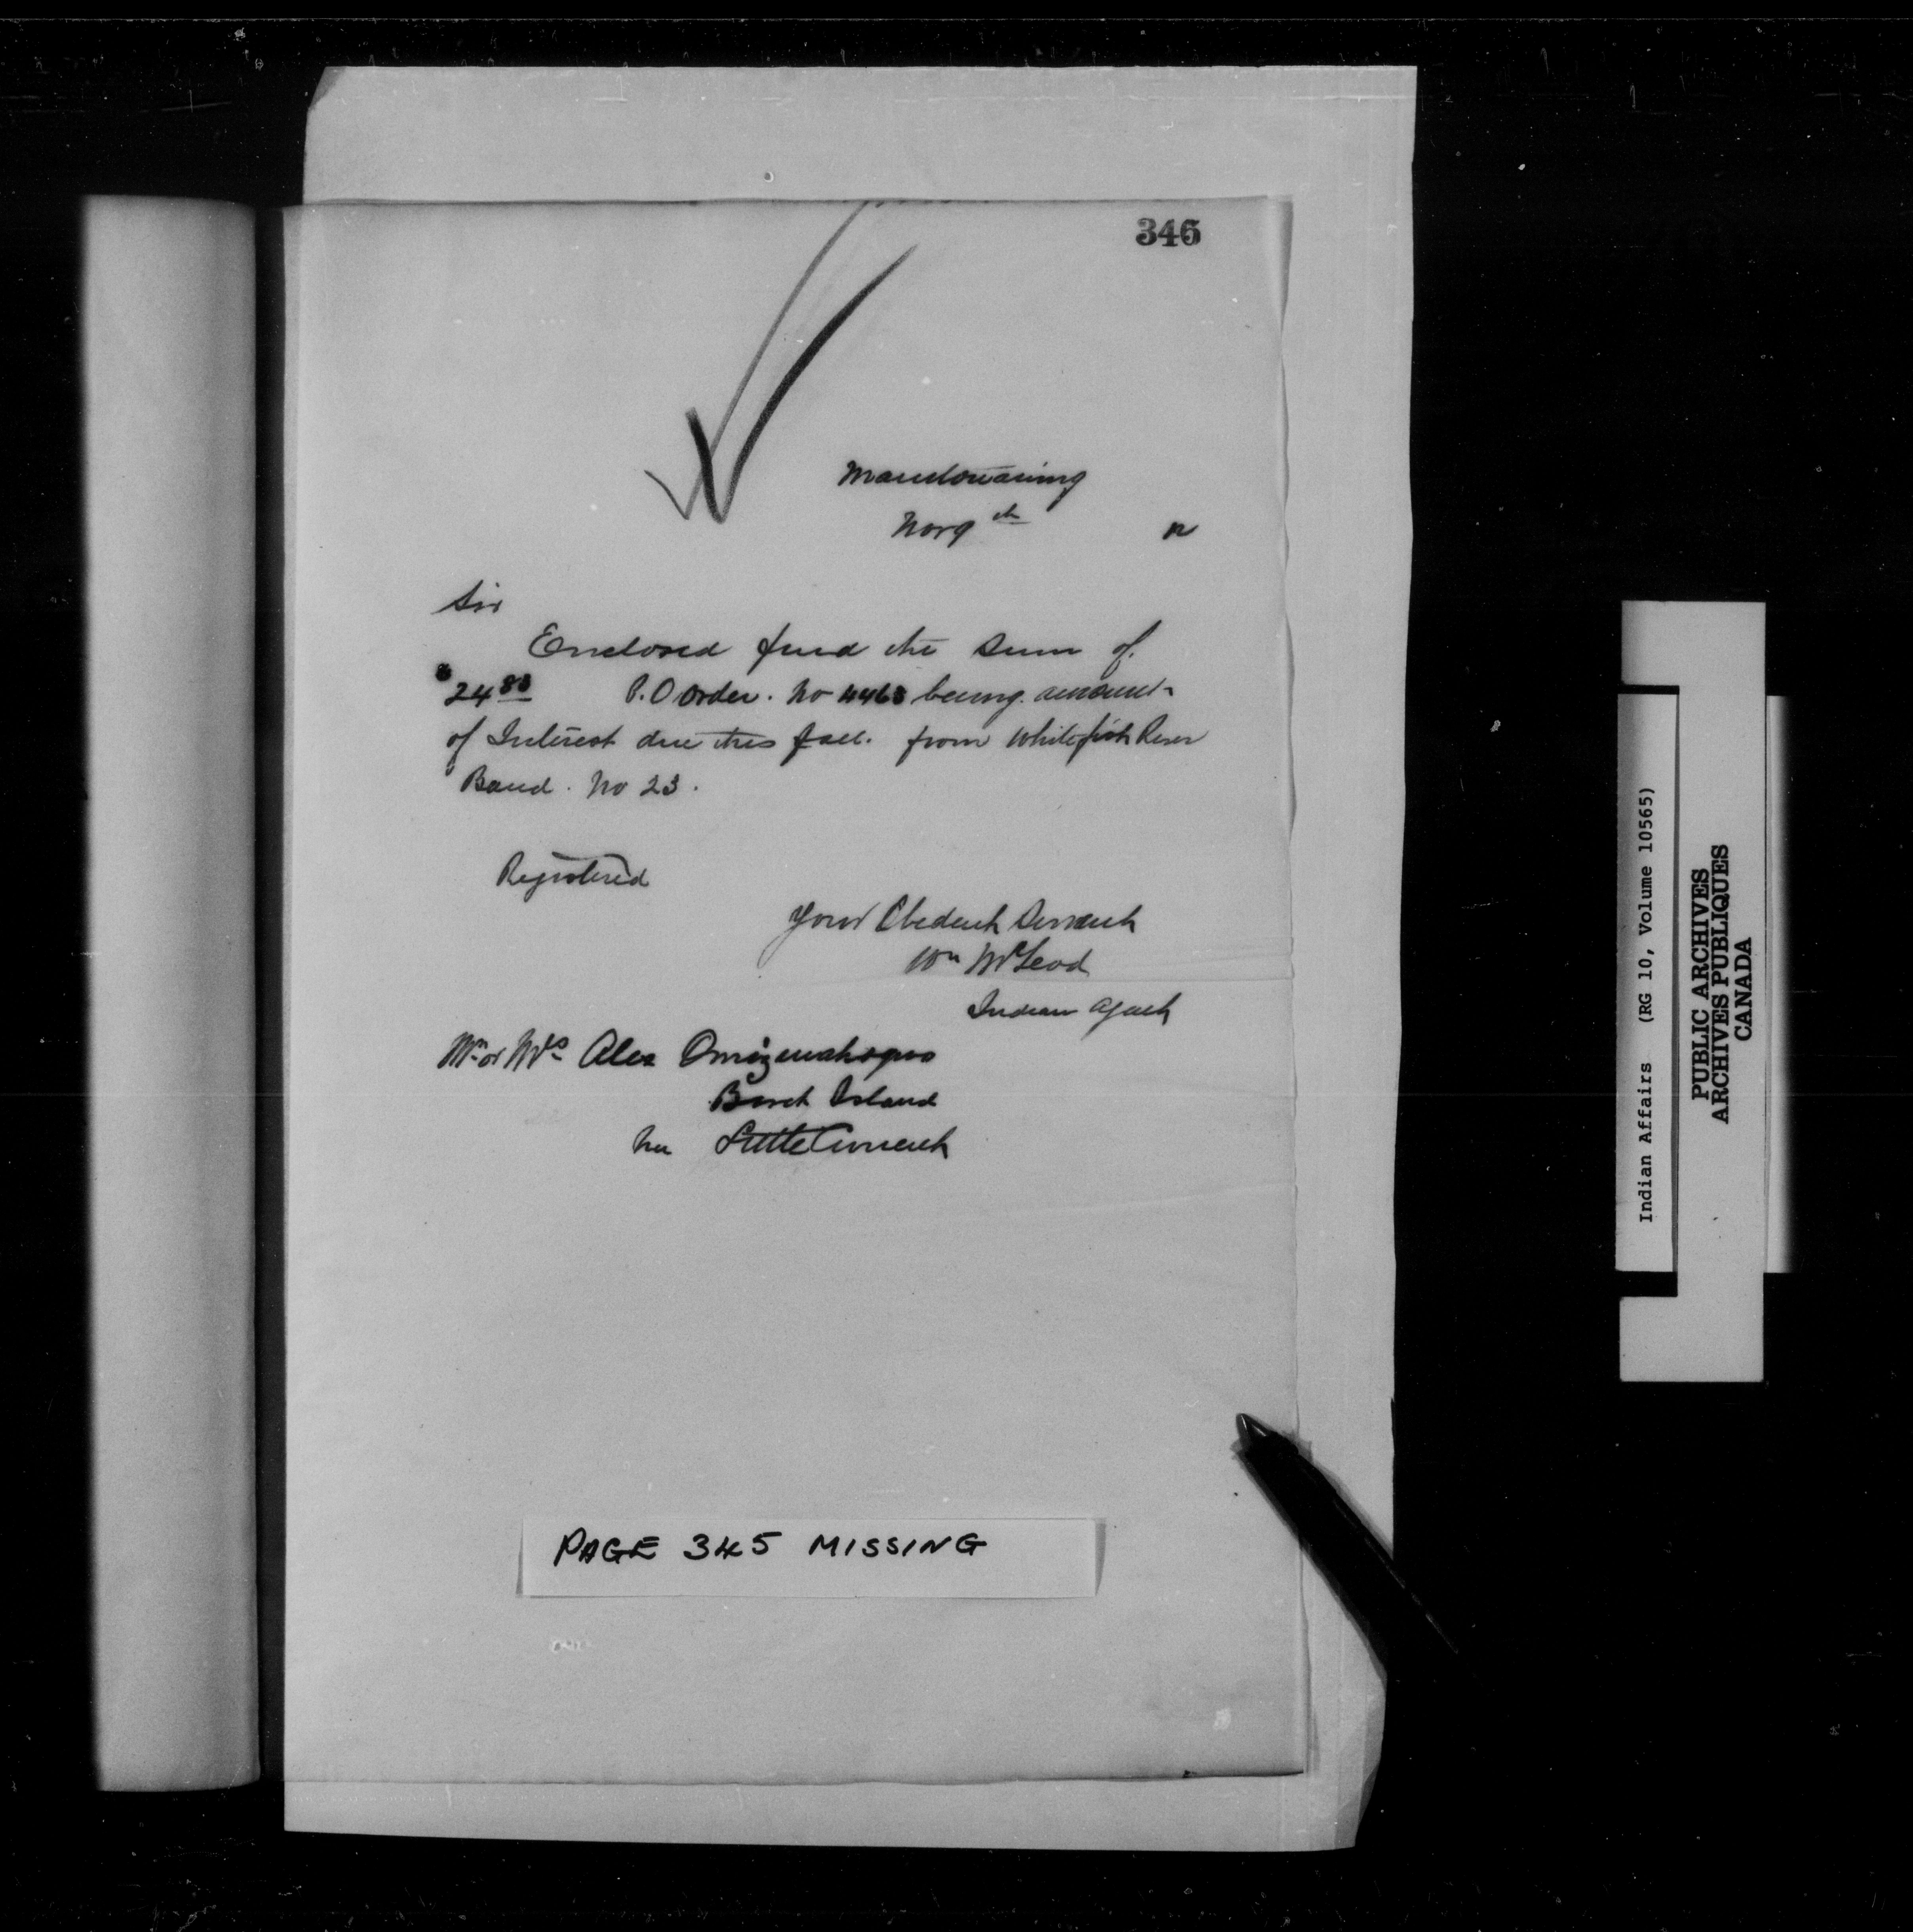 346
Manitowaning
Nov 9th 12
Sir
Enclosed find the sum of
$24.88 P.O Order. No 4463 being. amount
of Interest due this fall. from Whitefish River
Band. No 23.
Registered
Your Obedient Servant
Wm McLeod
Indian Agent
Mr or Mrs Alex
Birch Island
Little Current
PAGE 345 MISSING
Indian Affairs (RG 10, Volume 10565)
PUBLIC ARCHIVES
ARCHIVES PUBLIQUES
CANADA